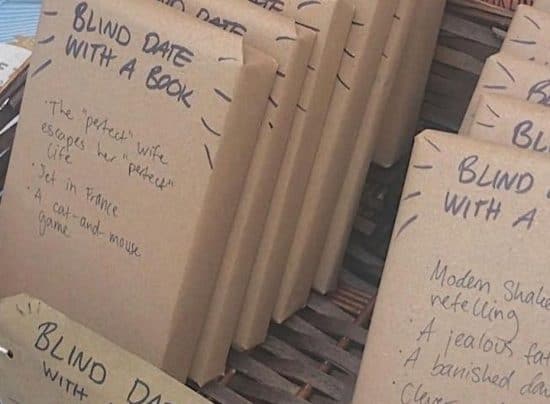 BLIND DATE
WITH A BOOK
· The "perfect" wife
escapes her "perfect"
life
· Set in France
· A cat-and-mouse
game
BLIND DATE
DATE
BLIND
WITH A
Modern
retelling
· A jealous
· A banished
BL
BLIND
WITH